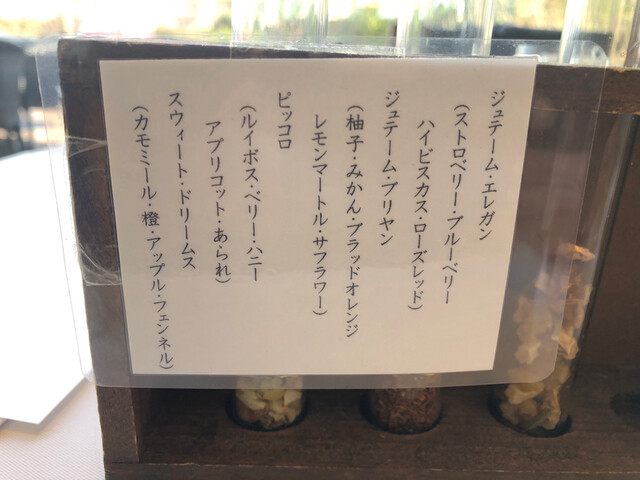 ジュテーム・エレガン
(ストロベリー・ブルーベリー
ハイビスカス・ローズレッド)
ジュテーム・ブリヤン
(柚子・みかん・ブラッドオレンジ
レモンマートル・サフラワー)
ピッコロ
(ルイボス・ベリー・ハニー
アプリコット・あられ)
スウィート・ドリームス
(カモミール・橙・アップル・フェンネル)